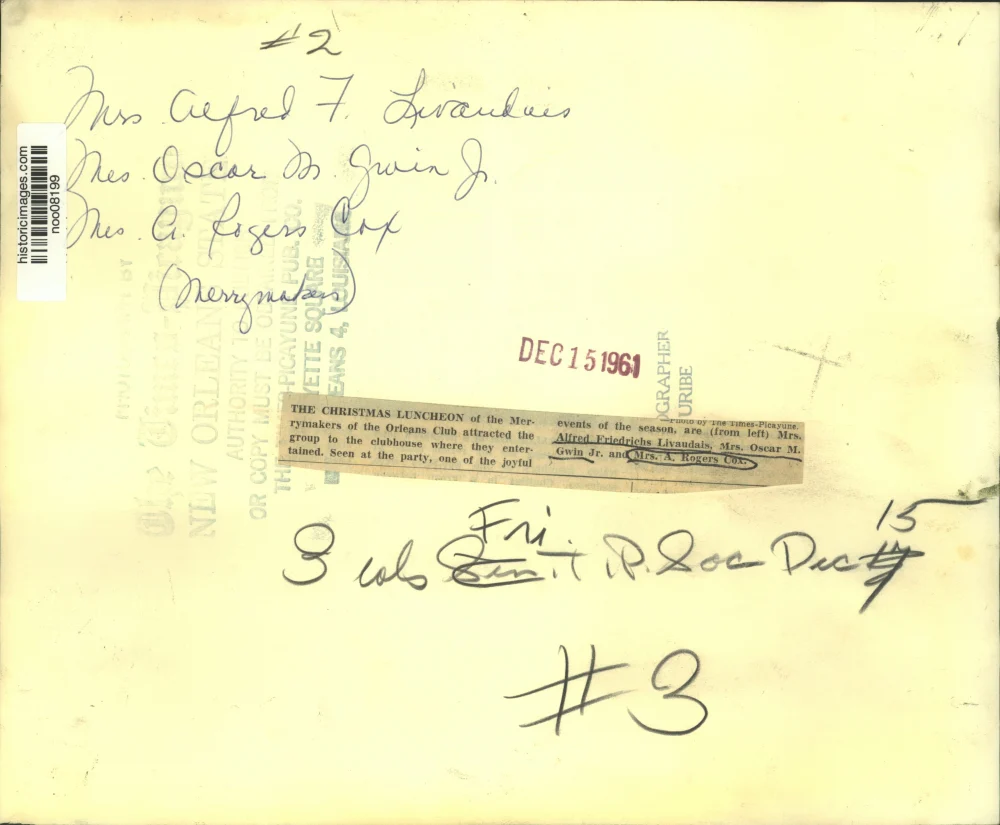 #2
Mrs Alfred F. Livaudais
Mrs. Oscar M. Gwin Jr.
Mrs. A. Rogers Cox
(Merrymakers)
historicimages.com
noo08199
The Times-Picayune
NEW ORLEANS STATES
AUTHORITY TO
OR COPY MUST BE
THE TIMES-PICAYUNE PUB. CO.
LAFAYETTE SQUARE
NEW ORLEANS 4, LOUISIANA
DEC 15 1961
OGRAPHER
URIBE
THE CHRISTMAS LUNCHEON of the Mer-
rymakers of the Orleans Club attracted the
group to the clubhouse where they enter-
tained. Seen at the party, one of the joyful
—Photo by The Times-Picayune.
events of the season, are (from left) Mrs.
Alfred Friedrichs Livaudais, Mrs. Oscar M.
Gwin Jr. and Mrs. A. Rogers Cox.
Fri. 15
3 cols Sun. T.P. Soc Dec 17
#3